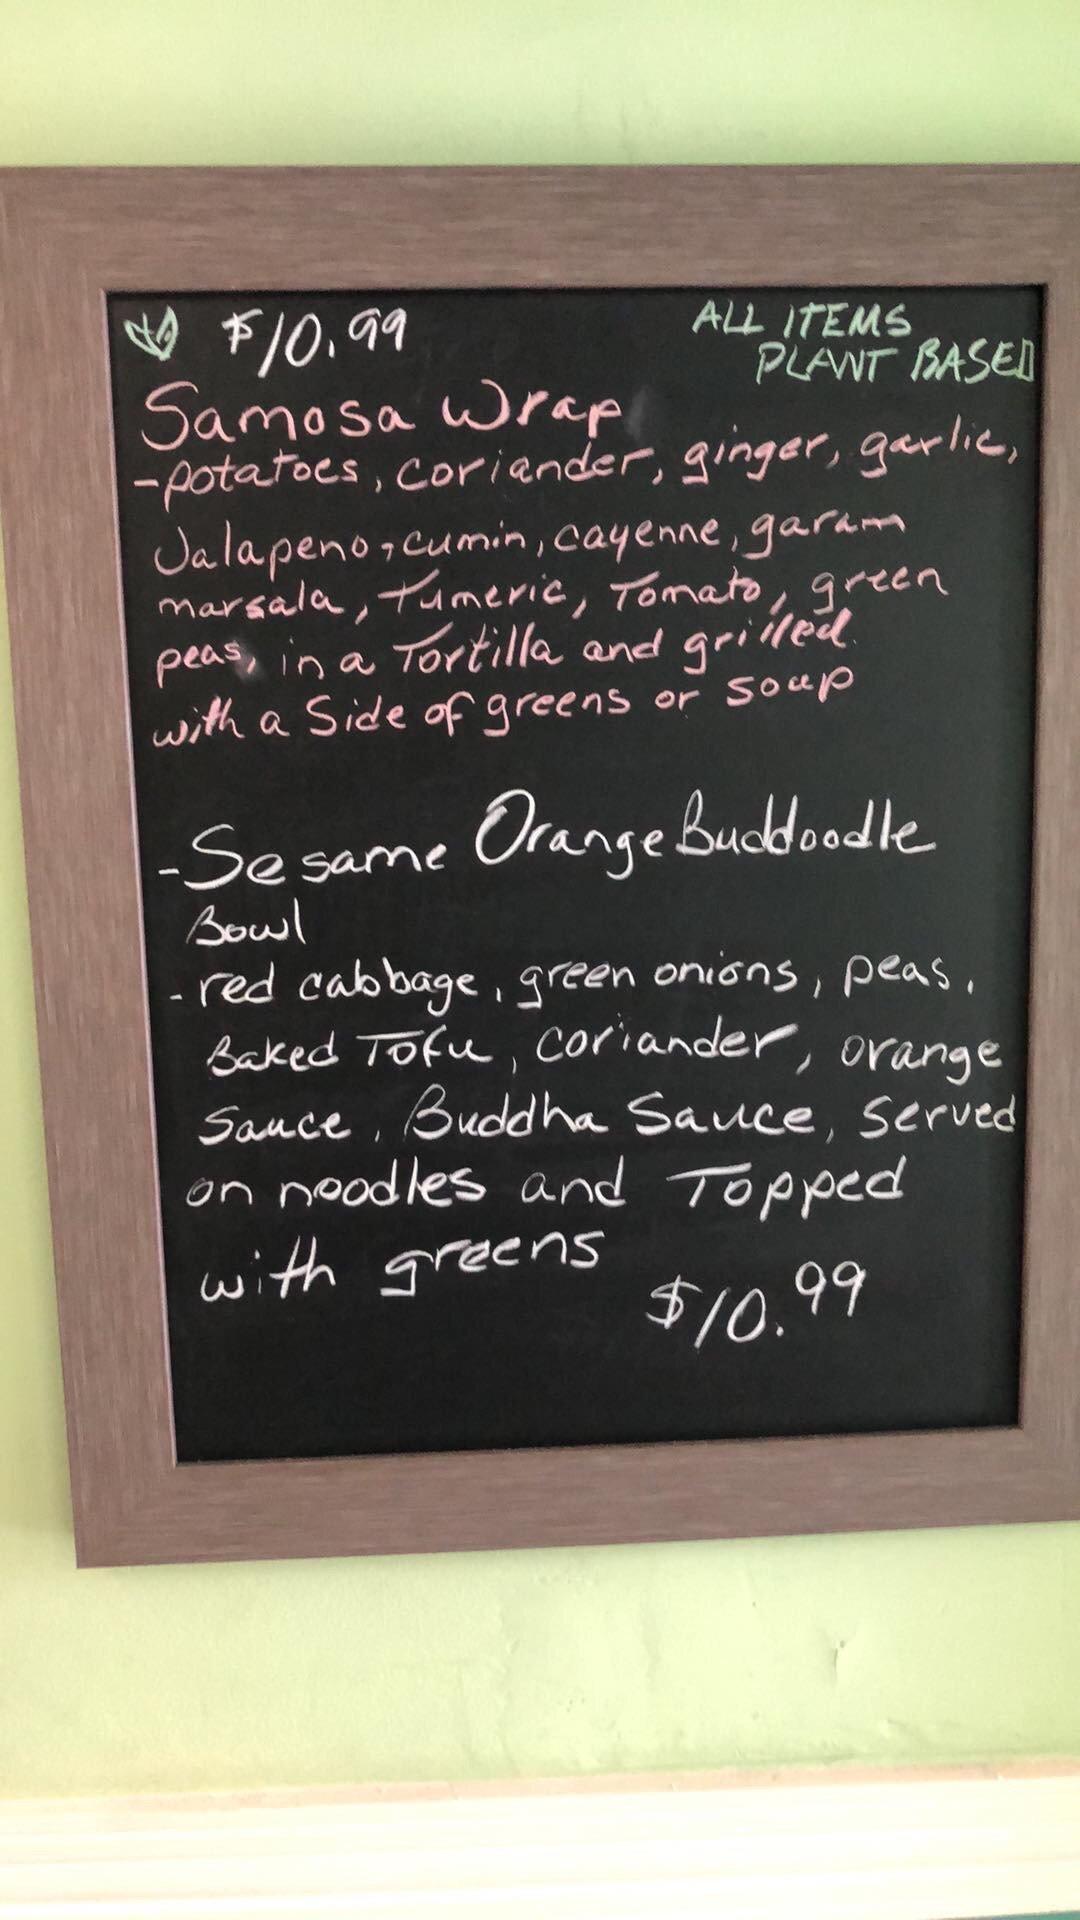 $10.99
ALL ITEMS
PLANT BASED
Samosa Wrap
-potatoes, coriander, ginger, garlic,
Jalapeno, cumin, cayenne, garam
marsala, Tumeric, Tomato, green
peas, in a Tortilla and grilled
with a Side of greens or soup
-Sesame Orange Buddoodle
Bowl
-red cabbage, green onions, peas,
Baked Tofu, coriander, orange
Sauce, Buddha Sauce, Served
on noodles and Topped
with greens
$10.99